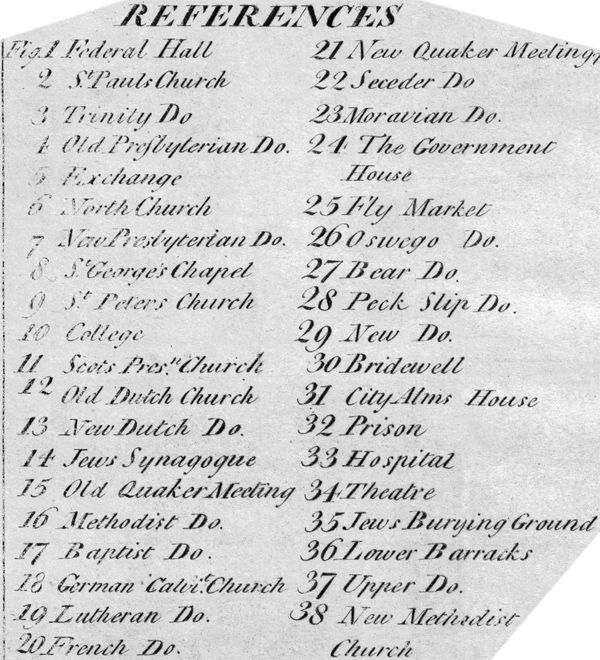 REFERENCES
Fig. 1 Federal Hall
2 St. Pauls Church
3 Trinity Do
4 Old Presbyterian Do.
5 Exchange
6 North Church
7 New Presbyterian Do.
8 St. George's Chapel
9 St. Peters Church
10 College
11 Scots Pres.n Church
12 Old Dutch Church
13 New Dutch Do.
14 Jews Synagogue
15 Old Quaker Meeting
16 Methodist Do.
17 Baptist Do.
18 German Calvi.t Church
19 Lutheran Do.
20 French Do.
21 New Quaker Meeting
22 Seceder Do
23 Moravian Do.
24 The Government
House
25 Fly Market
26 Oswego Do.
27 Bear Do.
28 Peck Slip Do.
29 New Do.
30 Bridewell
31 City Alms House
32 Prison
33 Hospital
34 Theatre
35 Jews Burying Ground
36 Lower Barracks
37 Upper Do.
38 New Methodist
Church